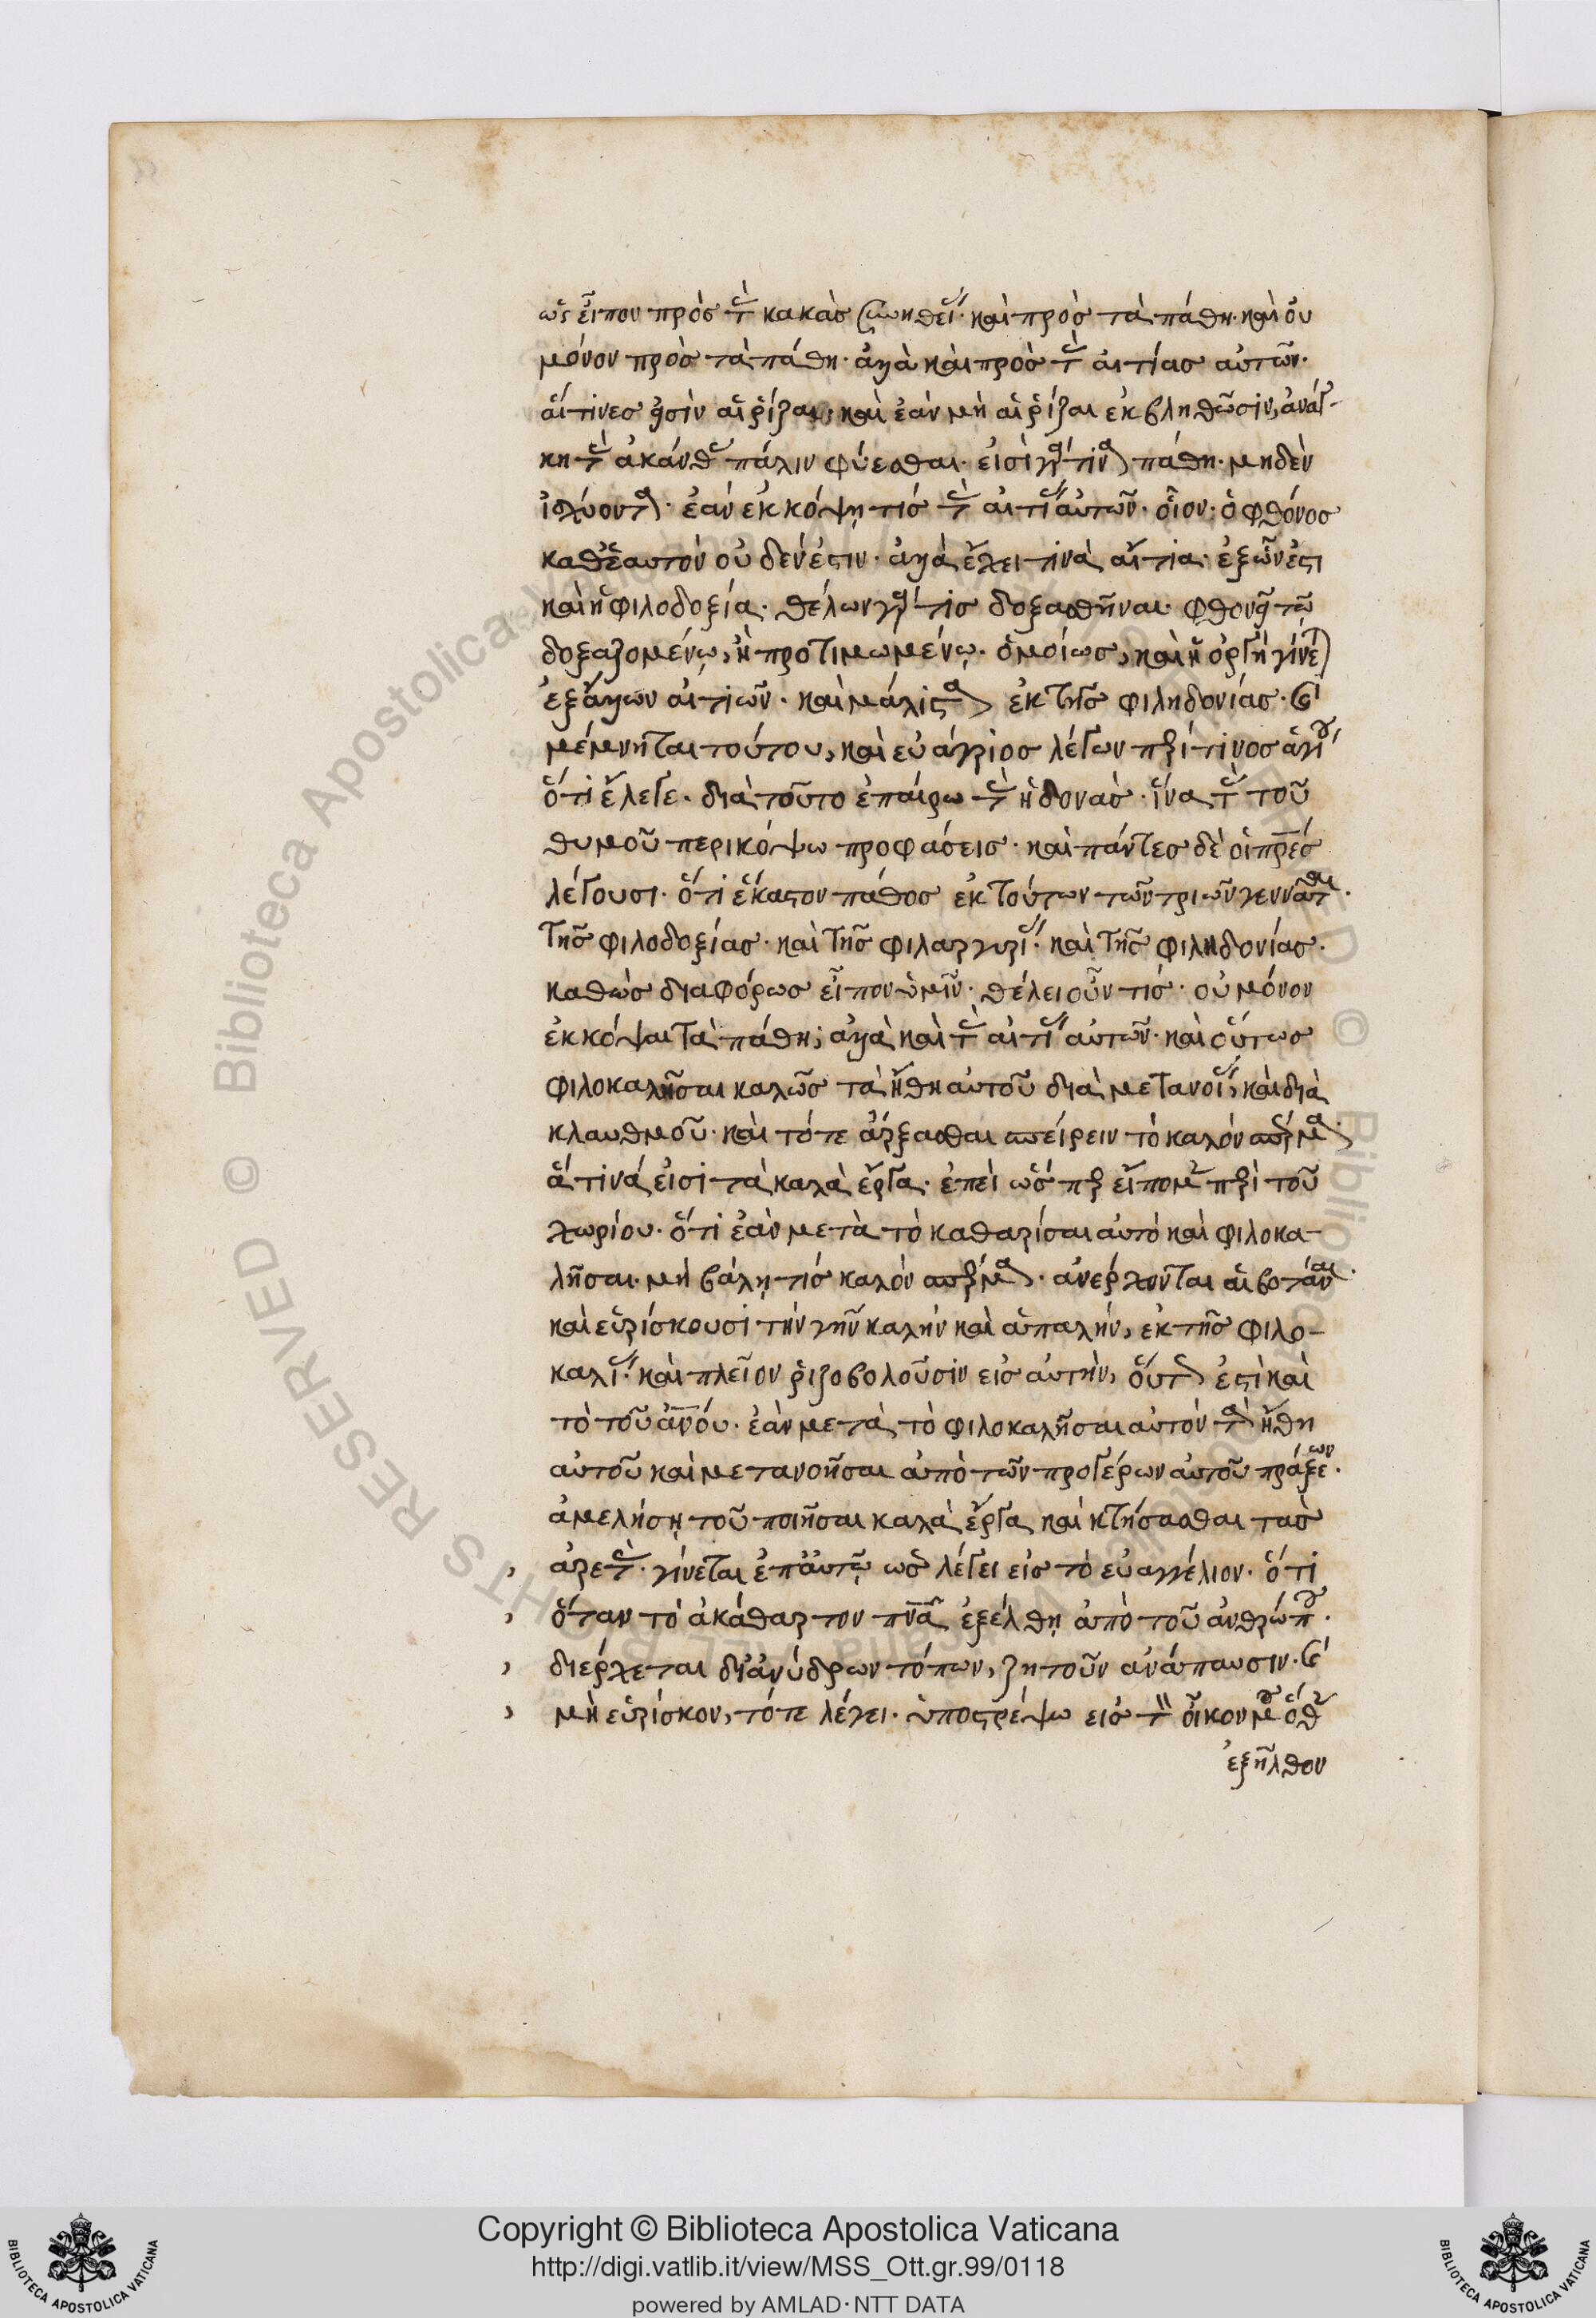 ὡς εἶπον πρὸς τὰς κακὰς συνηθείας· καὶ πρὸς τὰ πάθη· καὶ οὐ
μόνον πρὸς τὰ πάθη· ἀλλὰ καὶ πρὸς τὰς αἰτίας αὐτῶν·
αἵτινες εἰσὶν αἱ ῥίζαι· καὶ ἐὰν μὴ αἱ ῥίζαι ἐκβληθῶσιν, ἀνάγ-
κη τὰς ἀκάνθας πάλιν φύεσθαι· εἰσὶ γάρ τινα πάθη· μηδὲν
ἰσχύοντα· ἐὰν ἐκκόψῃ τίς τὰς αἰτίας αὐτῶν· οἷον· ὁ φθόνος
καθ' ἑαυτὸν οὐδέν ἐστιν· ἀλλὰ ἔχει τινὰ αἴτια· ἐξ ὧν ἐστι
καὶ ἡ φιλοδοξία· θέλων γάρ τις δοξασθῆναι· φθονεῖ τῷ
δοξαζομένῳ, ἢ προτιμωμένῳ· ὁμοίως, καὶ ἡ ὀργὴ γίνεται
ἐξ ἄλλων αἰτιῶν· καὶ μάλιστα ἐκ τῆς φιληδονίας· καὶ
μέμνηται τούτου, καὶ εὐάγριος λέγων περί τινος ἁγίου
ὅτι ἔλεγε· διὰ τοῦτο ἐπαίρω τὰς ἡδονάς· ἵνα τὰς τοῦ
θυμοῦ περικόψω προφάσεις· καὶ πάντες δὲ οἱ πρες
λέγουσι· ὅτι ἕκαστον πάθος ἐκ τούτων τῶν τριῶν γεννᾶται·
τῆς φιλοδοξίας· καὶ τῆς φιλαργυρίας· καὶ τῆς φιληδονίας·
καθὼς διαφόρως εἶπον ὑμῖν· θέλει οὖν τίς· οὐ μόνον
ἐκκόψαι τὰ πάθη; ἀλλὰ καὶ τὰς αἰτίας αὐτῶν· καὶ οὕτως
φιλοκαλῆσαι καλῶς τὰ ἤθη αὐτοῦ διὰ μετανοίας, καὶ διὰ
κλαυθμοῦ· καὶ τότε ἄρξασθαι σπείρειν τὸ καλὸν σπέρμα
ἅτινά εἰσι τὰ καλὰ ἔργα· ἐπεὶ ὥσπερ εἴπομεν περὶ τοῦ
χωρίου· ὅτι ἐὰν μετὰ τὸ καθαρίσαι αὐτὸ καὶ φιλοκα-
λῆσαι· μὴ βάλῃ τίς καλὸν σπέρμα· ἀνέρχονται αἱ βοτάναι·
καὶ εὑρίσκουσι τὴν γῆν καλὴν καὶ ἁπαλήν, ἐκ τῆς φιλο-
καλίας· καὶ πλεῖον ῥιζοβολοῦσιν εἰς αὐτήν, οὕτως ἐστὶ καὶ
τὸ τοῦ ἀνου· ἐὰν μετὰ τὸ φιλοκαλῆσαι αὐτὸν τὰ ἤθη
αὐτοῦ καὶ μετανοῆσαι ἀπὸ τῶν προτέρων αὐτοῦ πράξεων·
ἀμελήσῃ τοῦ ποιῆσαι καλὰ ἔργα καὶ κτήσασθαι τὰς
ἀρετάς· γίνεται ἐπ' αὐτῷ ὡς λέγει εἰς τὸ εὐαγγέλιον· ὅτι
ὅταν τὸ ἀκάθαρτον πνα ἐξέλθῃ ἀπὸ τοῦ ἀνθρώπου·
διέρχεται δι' ἀνύδρων τόπων, ζητοῦν ἀνάπαυσιν· καὶ
μὴ εὑρίσκον, τότε λέγει· ὑποστρέψω εἰς τὸν οἶκον μου ὅθεν
ἐξῆλθον
Copyright © Biblioteca Apostolica Vaticana
http://digi.vatlib.it/view/MSS_Ott.gr.99/0118
powered by AMLAD·NTT DATA